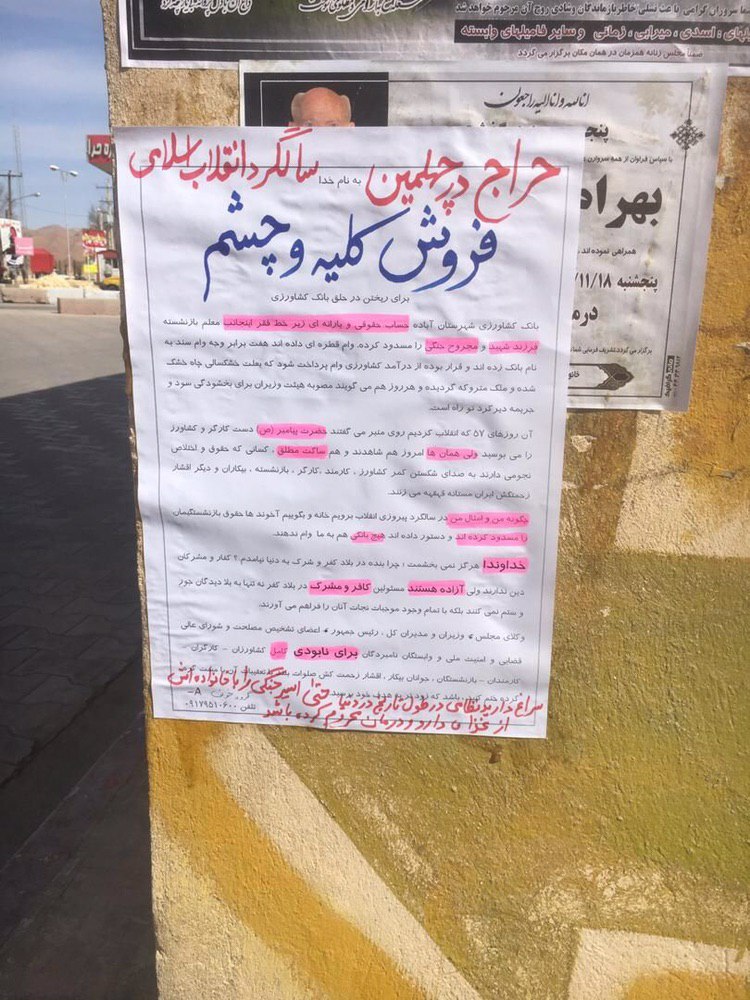 سروران گرامی با عث تسلی خاطر بازماندگان وشادی روح آن مرحوم خواهد شد
فامیلهای : اسدی ، میرابی ، زمانی و سایر فامیلهای وابسته
ضمنا مجلس زنانه همزمان در همان مکان برگزار می گردد
انا لله و انا الیه راجعون
با سپاس فراوان از همه سروران
بهرام
همراهی نموده اند
پنجشنبه ۱۱/۱۸/
حراج در چهلمین سالگرد انقلاب اسلامی
به نام خدا
فروش کلیه و چشم
برای ریختن در حلق بانک کشاورزی
بانک کشاورزی شهرستان آباده حساب حقوقی و یارانه ای زیر خط فقر اینجانب معلم بازنشسته
فرزند شهید و مجروح جنگی را مسدود کرده. وام قطره ای داده اند هفت برابر وجه وام سند به
نام بانک زده اند و قرار بوده از درآمد کشاورزی وام پرداخت شود که بعلت خشکسالی چاه خشک
شده و ملک متروکه گردیده و هرروز هم می گویند مصوبه هیئت وزیران برای بخشودگی سود و
جریمه دیرکرد تو راه است.
آن روزهای ۵۷ که انقلاب کردیم روی منبر می گفتند حضرت پیامبر (ص) دست کارگر و کشاورز
را می بوسید ولی همان ها امروز هم شاهدند و هم ساکت مطلق ، کسانی که حقوق و اختلاص
نجومی دارند به صدای شکستن کمر کشاورز ، کارمند ،کارگر ، بازنشسته ، بیکاران و دیگر اقشار
زحمتکش ایران مستانه قهقهه می زنند.
چگونه من و امثال من در سالگرد پیروزی انقلاب برویم خانه و بگوییم آخوند ها حقوق بازنشستگیمان
را مسدود کرده اند و دستور داده اند هیچ بانکی هم به ما وام ندهند.
خداوندا هرگز نمی بخشمت ؛ چرا بنده در بلاد کفر و شرک به دنیا نیامدم ؟ کفار و مشرکان
دین ندارند ولی آزاده هستند مسئولین کافر و مشرک در بلاد کفر نه تنها به بلا دیدگان جور
و ستم نمی کنند بلکه با تمام وجود موجبات نجات آنان را فراهم می آورند.
وکلای مجلس ، وزیران و مدیران کل ، رئیس جمهور ، اعضای تشخیص مصلحت و شورای عالی
قضایی و امنیت ملی و وابستگان نامبردگان برای نابودی کامل کشاورزان – کارگران –
کارمندان – بازنشستگان ، جوانان بیکار ، اقشار زحمت کش صلوات
کرده ختم کنید، باشد که زودتر به هدف خود برسید
سراغ دارید نظامی در طول تاریخ در دنیا حتی اسیر جنگی را با خانواده اش
از غذا و دارو و درمان محروم کرده باشد
تلفن ۰۹۱۷۹۵۱۰۶۰۰